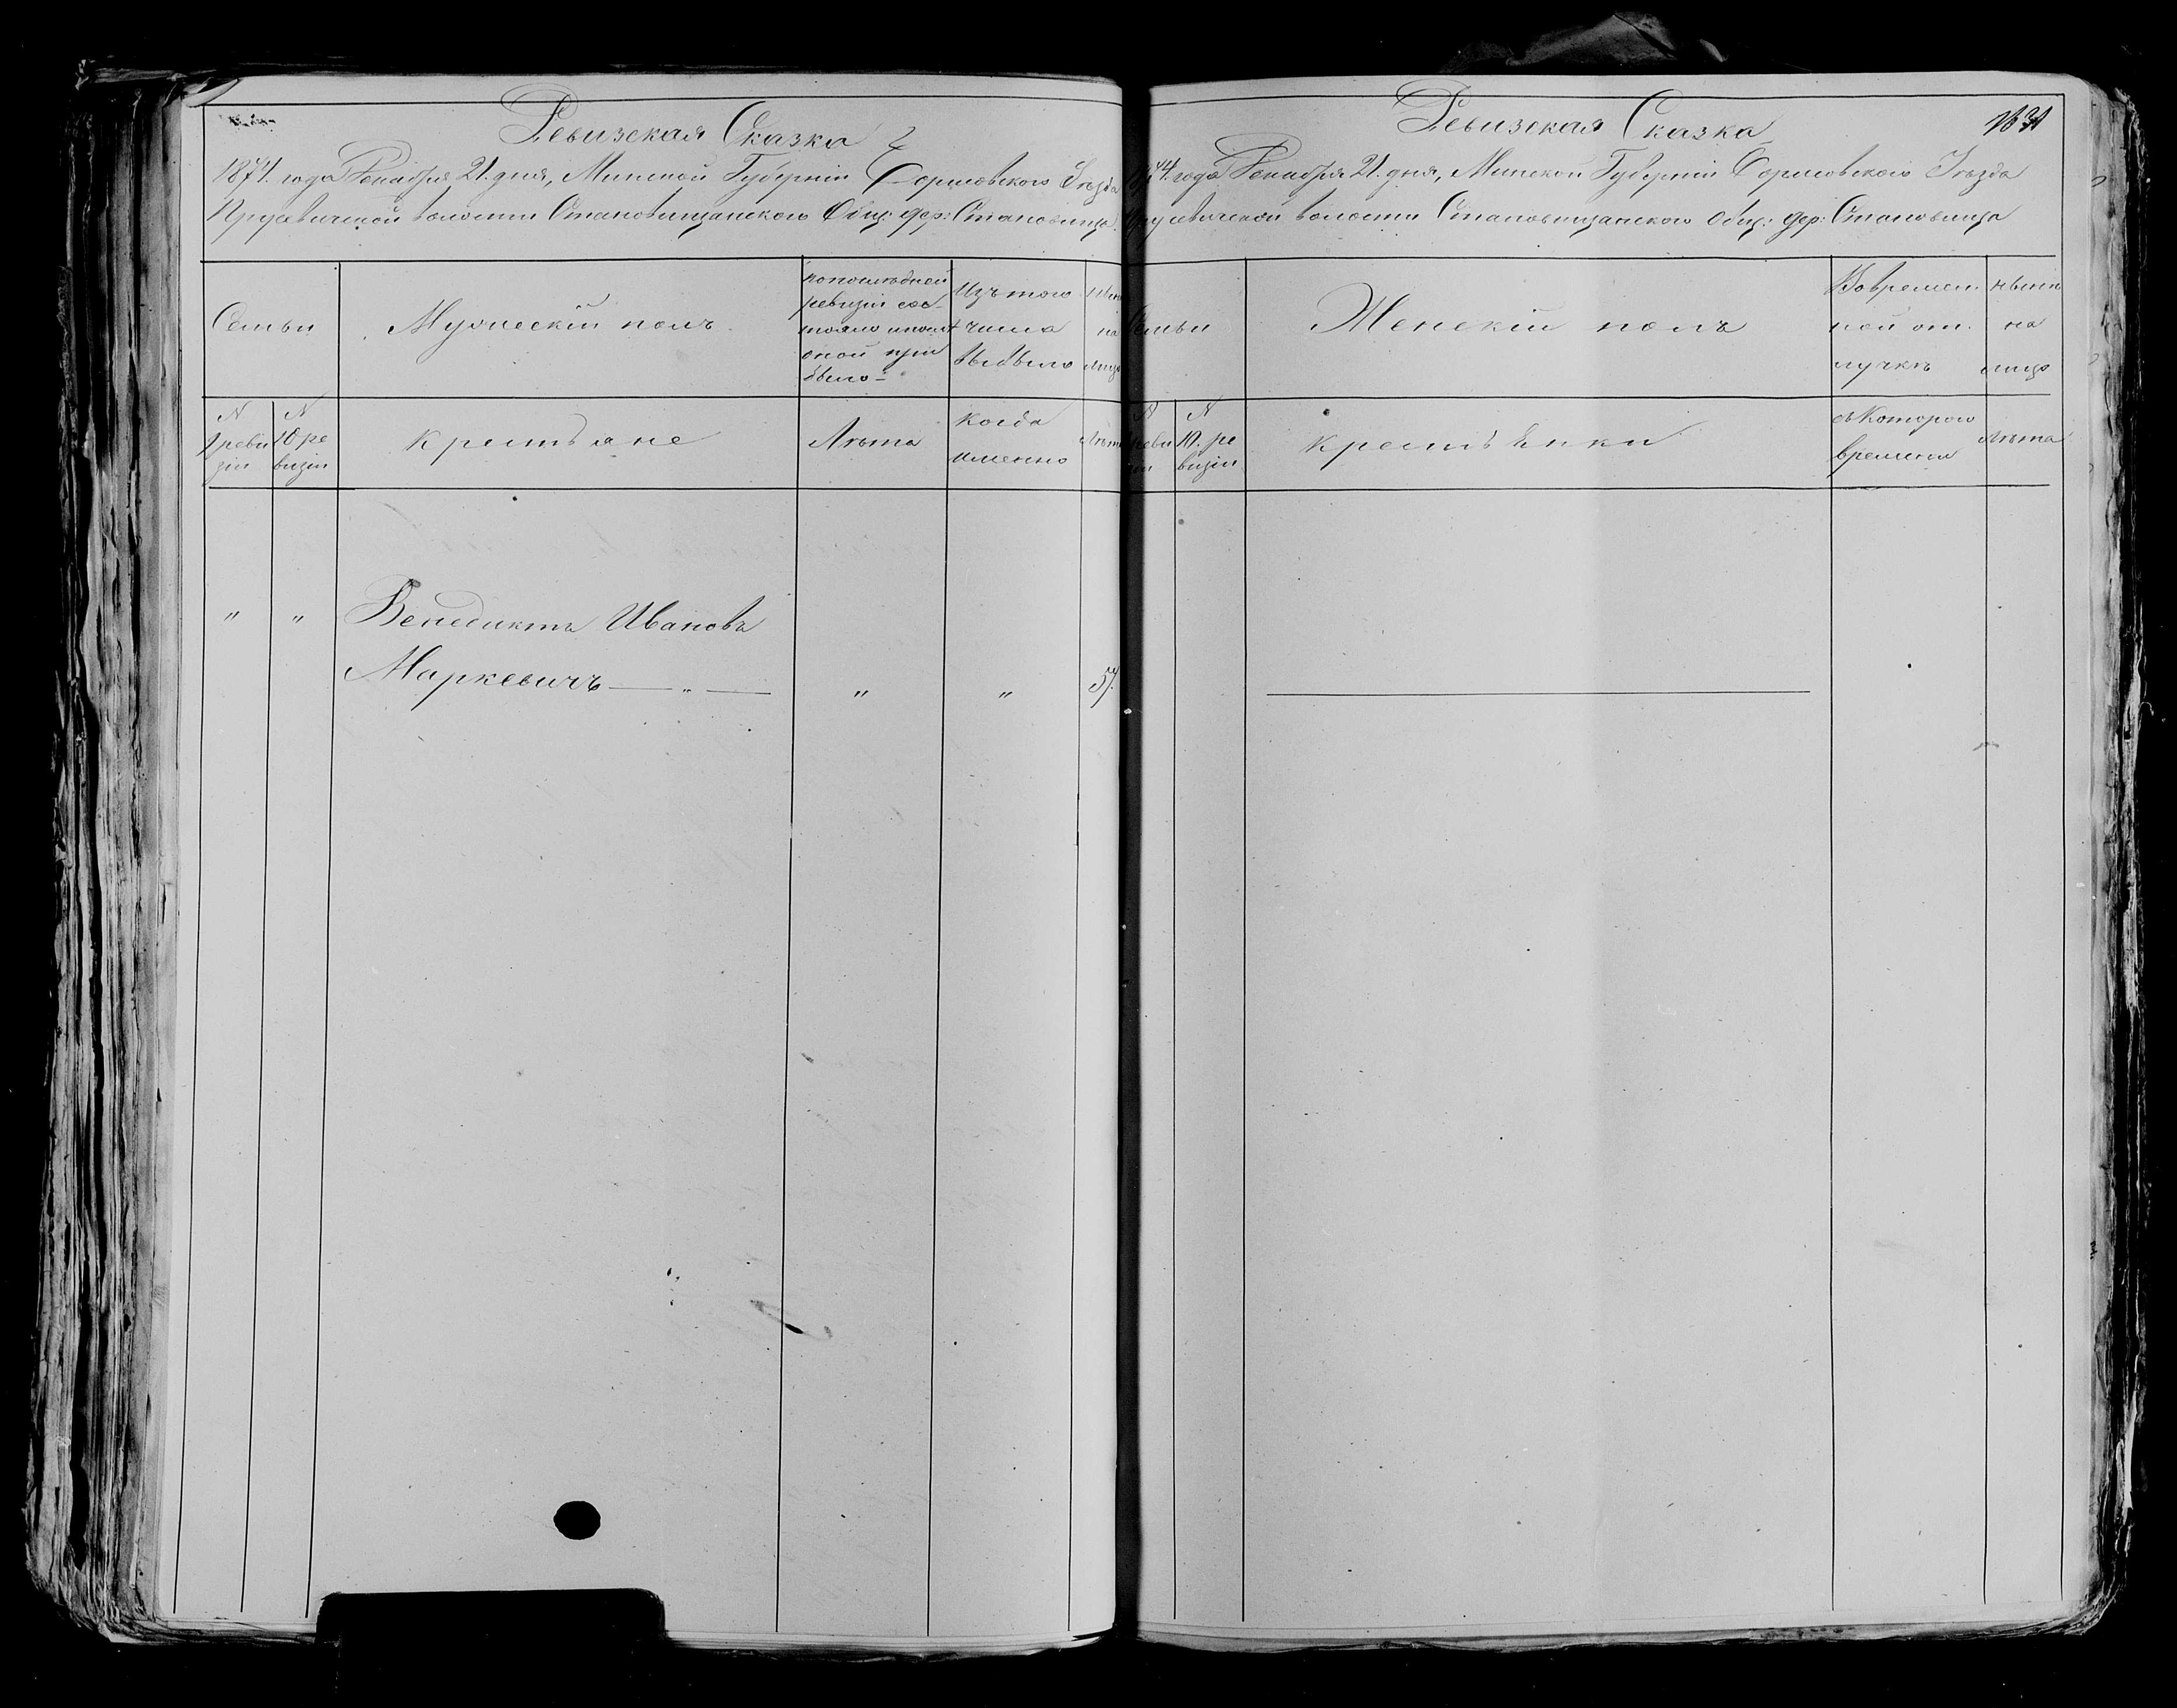 Ревизская Сказка
1874. года Декабря 21. дня, Минской Губерніи Борисовского Уѣзда
Прусевичской волости Становищанского Общ: дер: Становища
Семьи
Мужескій полъ
по последней
ревизіи сос-
тояло и после
оной при
было -
Изъ того
числа
выбыло
на
лицо
N
9 реви
зіи
N
10 ре
визіи
Крестьяне
Лѣта
когда
именно
Лѣта
" " Бенедиктъ Ивановъ
Маркевичъ — " — " " 57.
Ревизская Сказка
1631
74. года Декабря 21. дня, Минской Губерніи Борисовского Уѣзда
Прусевичской волости Становищанского Общ: дер: Становища
Семьи
Женскій полъ
Во времен
ной от-
лучкѣ
нынѣ
на
лицо
N
реви
зіи
N
10. ре
визіи
Крестьянки
съ которого
времени
Лѣта